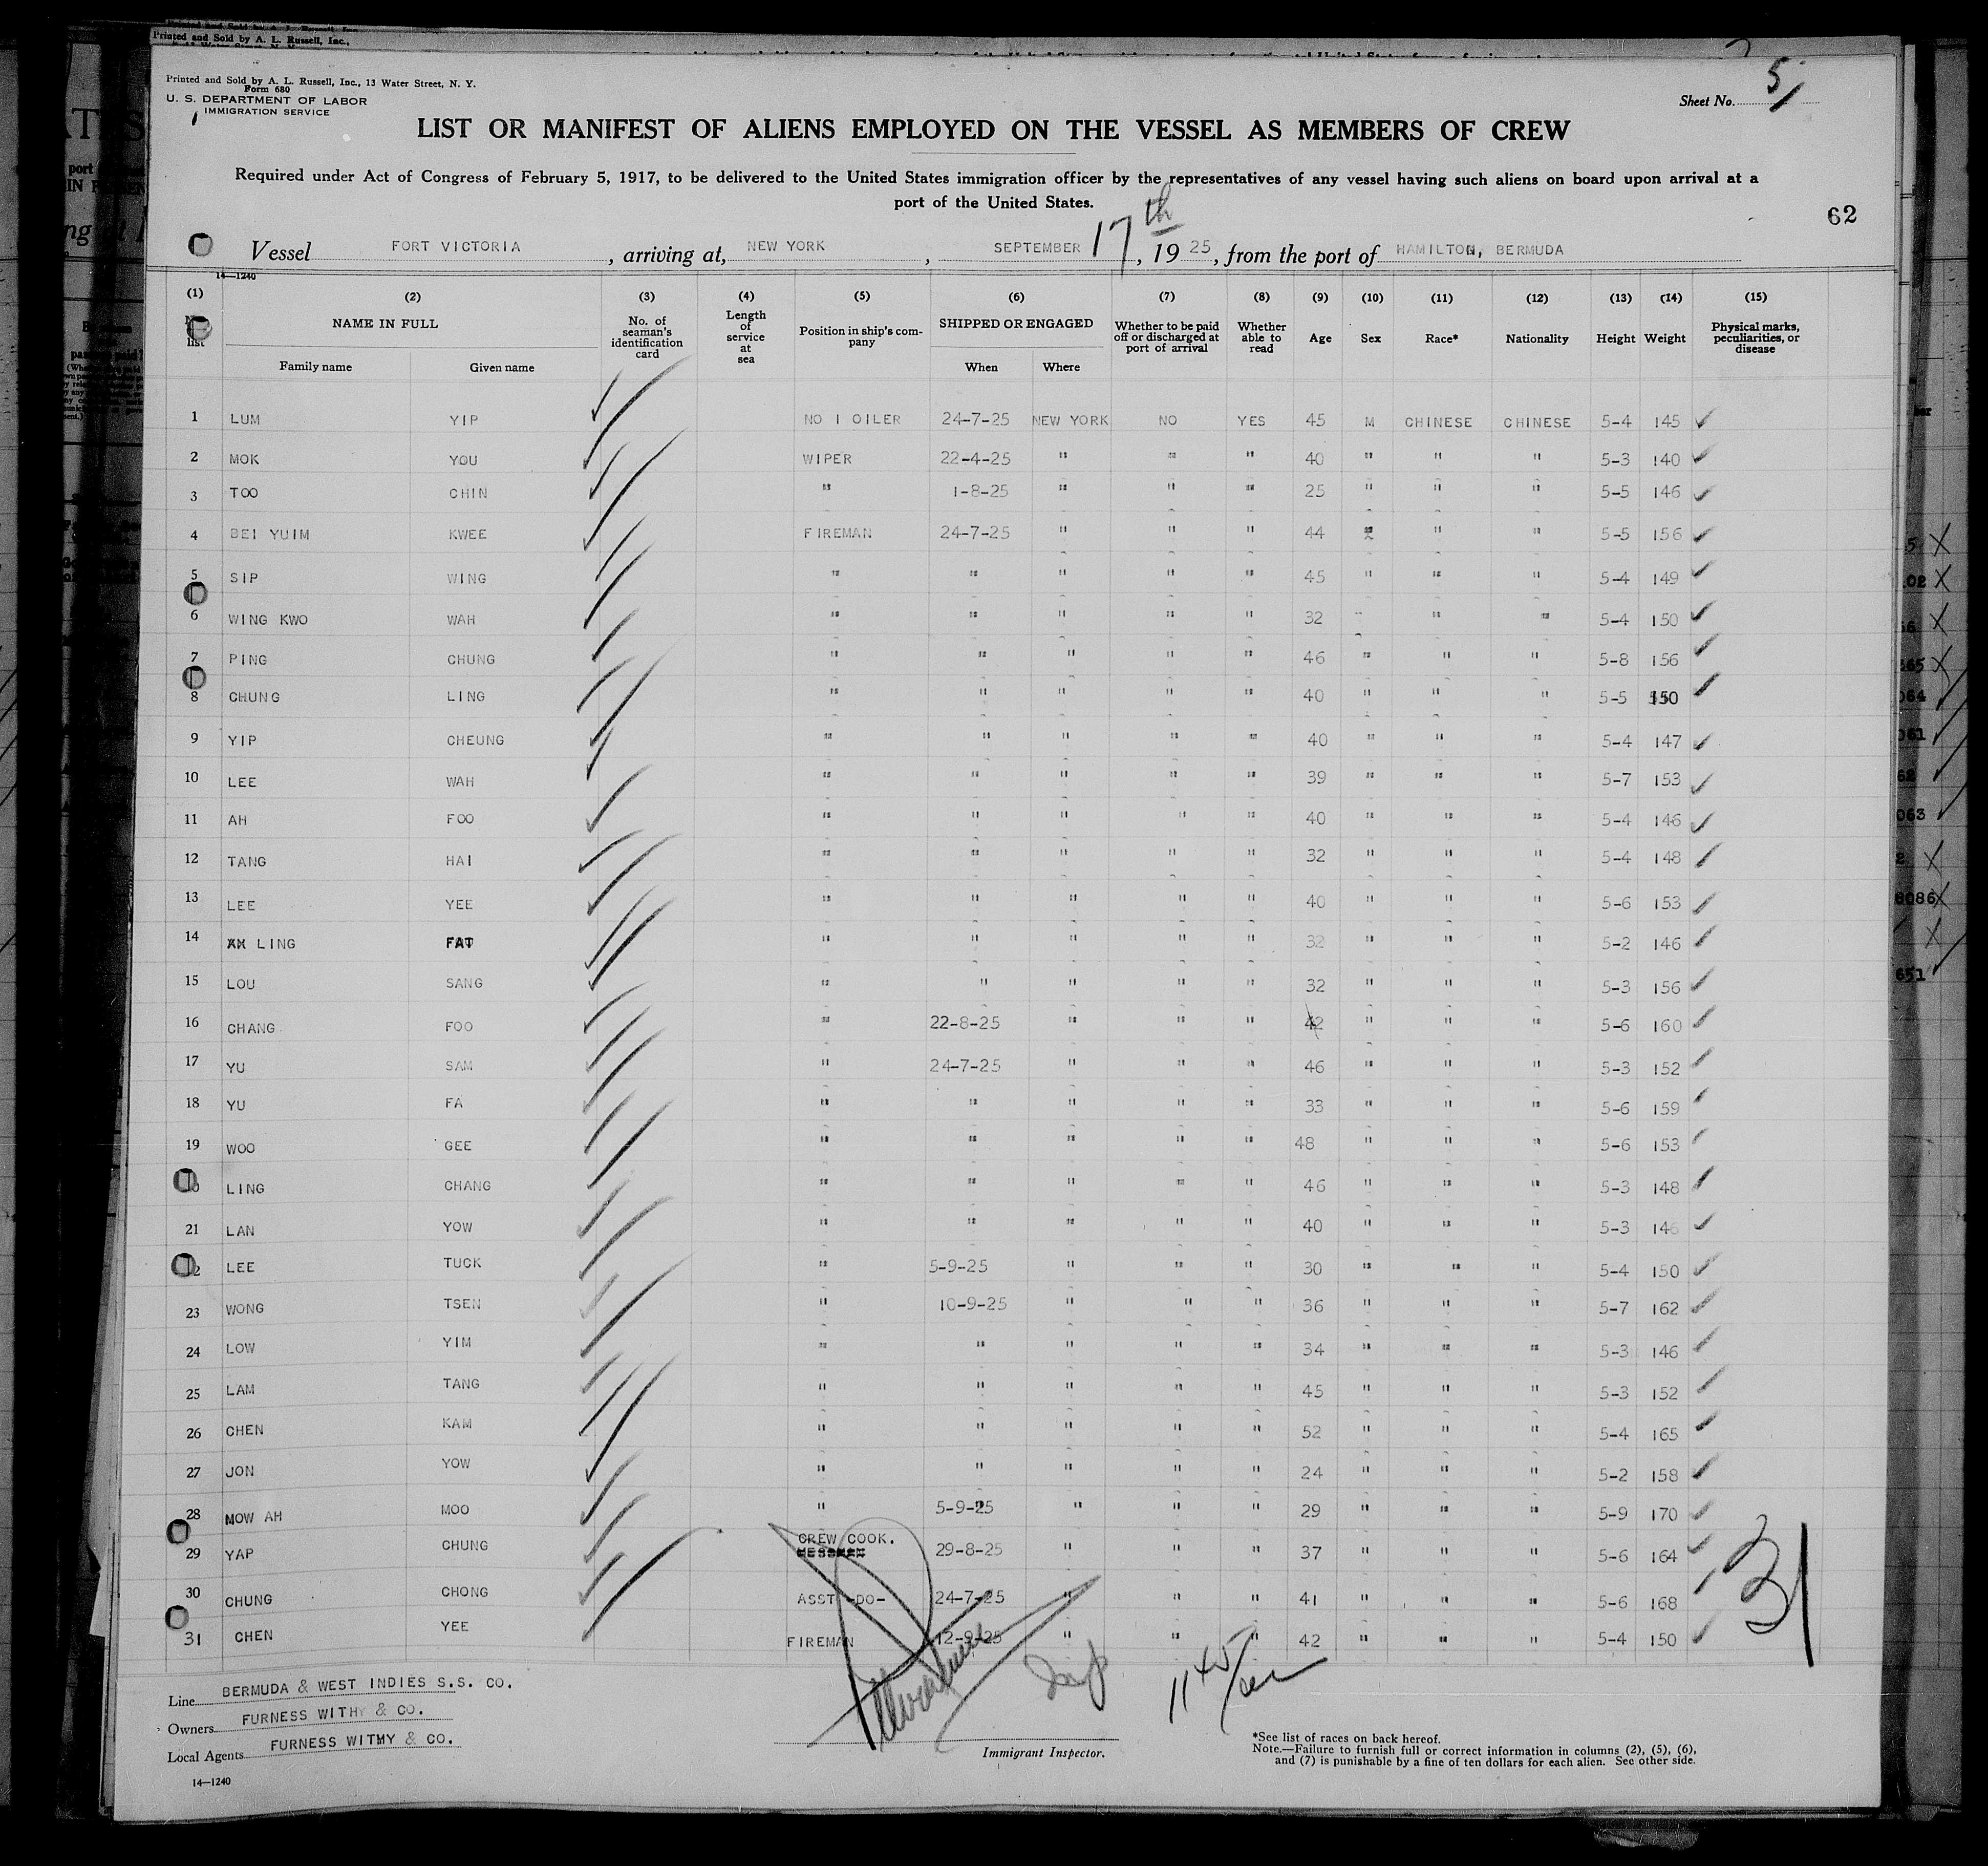 Printed and Sold by A. L. Russell, Inc.,
Printed and Sold by A. L. Russell, Inc., 13 Water Street, N. Y.
Form 680
U. S. DEPARTMENT OF LABOR
IMMIGRATION SERVICE
Sheet No. 5
LIST OR MANIFEST OF ALIENS EMPLOYED ON THE VESSEL AS MEMBERS OF CREW
Required under Act of Congress of February 5, 1917, to be delivered to the United States immigration officer by the representatives of any vessel having such aliens on board upon arrival at a
port of the United States.
62
Vessel FORT VICTORIA, arriving at, NEW YORK, SEPTEMBER 17th, 1925, from the port of HAMILTON, BERMUDA
14—1240
(1) (2) (3) (4) (5) (6) (7) (8) (9) (10) (11) (12) (13) (14) (15)
list NAME IN FULL No. of seaman's identification card Length of service at sea Position in ship's company SHIPPED OR ENGAGED Whether to be paid off or discharged at port of arrival Whether able to read Age Sex Race* Nationality Height Weight Physical marks, peculiarities, or disease
Family name Given name When Where
1 LUM YIP NO 1 OILER 24-7-25 NEW YORK NO YES 45 M CHINESE CHINESE 5-4 145
2 MOK YOU WIPER 22-4-25 " " " 40 " " " 5-3 140
3 TOO CHIN " 1-8-25 " " " 25 " " " 5-5 146
4 BEI YUIM KWEE FIREMAN 24-7-25 " " " 44 " " " 5-5 156
5 SIP WING " " " " " 45 " " " 5-4 149
6 WING KWO WAH " " " " " 32 " " " 5-4 150
7 PING CHUNG " " " " " 46 " " " 5-8 156
8 CHUNG LING " " " " " 40 " " " 5-5 150
9 YIP CHEUNG " " " " " 40 " " " 5-4 147
10 LEE WAH " " " " " 39 " " " 5-7 153
11 AH FOO " " " " " 40 " " " 5-4 146
12 TANG HAI " " " " " 32 " " " 5-4 148
13 LEE YEE " " " " " 40 " " " 5-6 153
14 LING FAT " " " " " 32 " " " 5-2 146
15 LOU SANG " " " " " 32 " " " 5-3 156
16 CHANG FOO " 22-8-25 " " " 42 " " " 5-6 160
17 YU SAM " 24-7-25 " " " 46 " " " 5-3 152
18 YU FA " " " " " 33 " " " 5-6 159
19 WOO GEE " " " " " 48 " " " 5-6 153
LING CHANG " " " " " 46 " " " 5-3 148
21 LAN YOW " " " " " 40 " " " 5-3 146
2 LEE TUCK " 5-9-25 " " " 30 " " " 5-4 150
23 WONG TSEN " 10-9-25 " " " 36 " " " 5-7 162
24 LOW YIM " " " " " 34 " " " 5-3 146
25 LAM TANG " " " " " 45 " " " 5-3 152
26 CHEN KAM " " " " " 52 " " " 5-4 165
27 JON YOW " " " " " 24 " " " 5-2 158
28 MOW AH MOO " 5-9-25 " " " 29 " " " 5-9 170
29 YAP CHUNG CREW COOK. 29-8-25 " " " 37 " " " 5-6 164
30 CHUNG CHONG ASST -DO- 24-7-25 " " " 41 " " " 5-6 168
31 CHEN YEE FIREMAN 12-9-25 " " " 42 " " " 5-4 150
31
Line BERMUDA & WEST INDIES S.S. CO.
Owners FURNESS WITHY & CO.
Local Agents FURNESS WITHY & CO.
14—1240
Immigrant Inspector.
*See list of races on back hereof.
Note.—Failure to furnish full or correct information in columns (2), (5), (6),
and (7) is punishable by a fine of ten dollars for each alien. See other side.